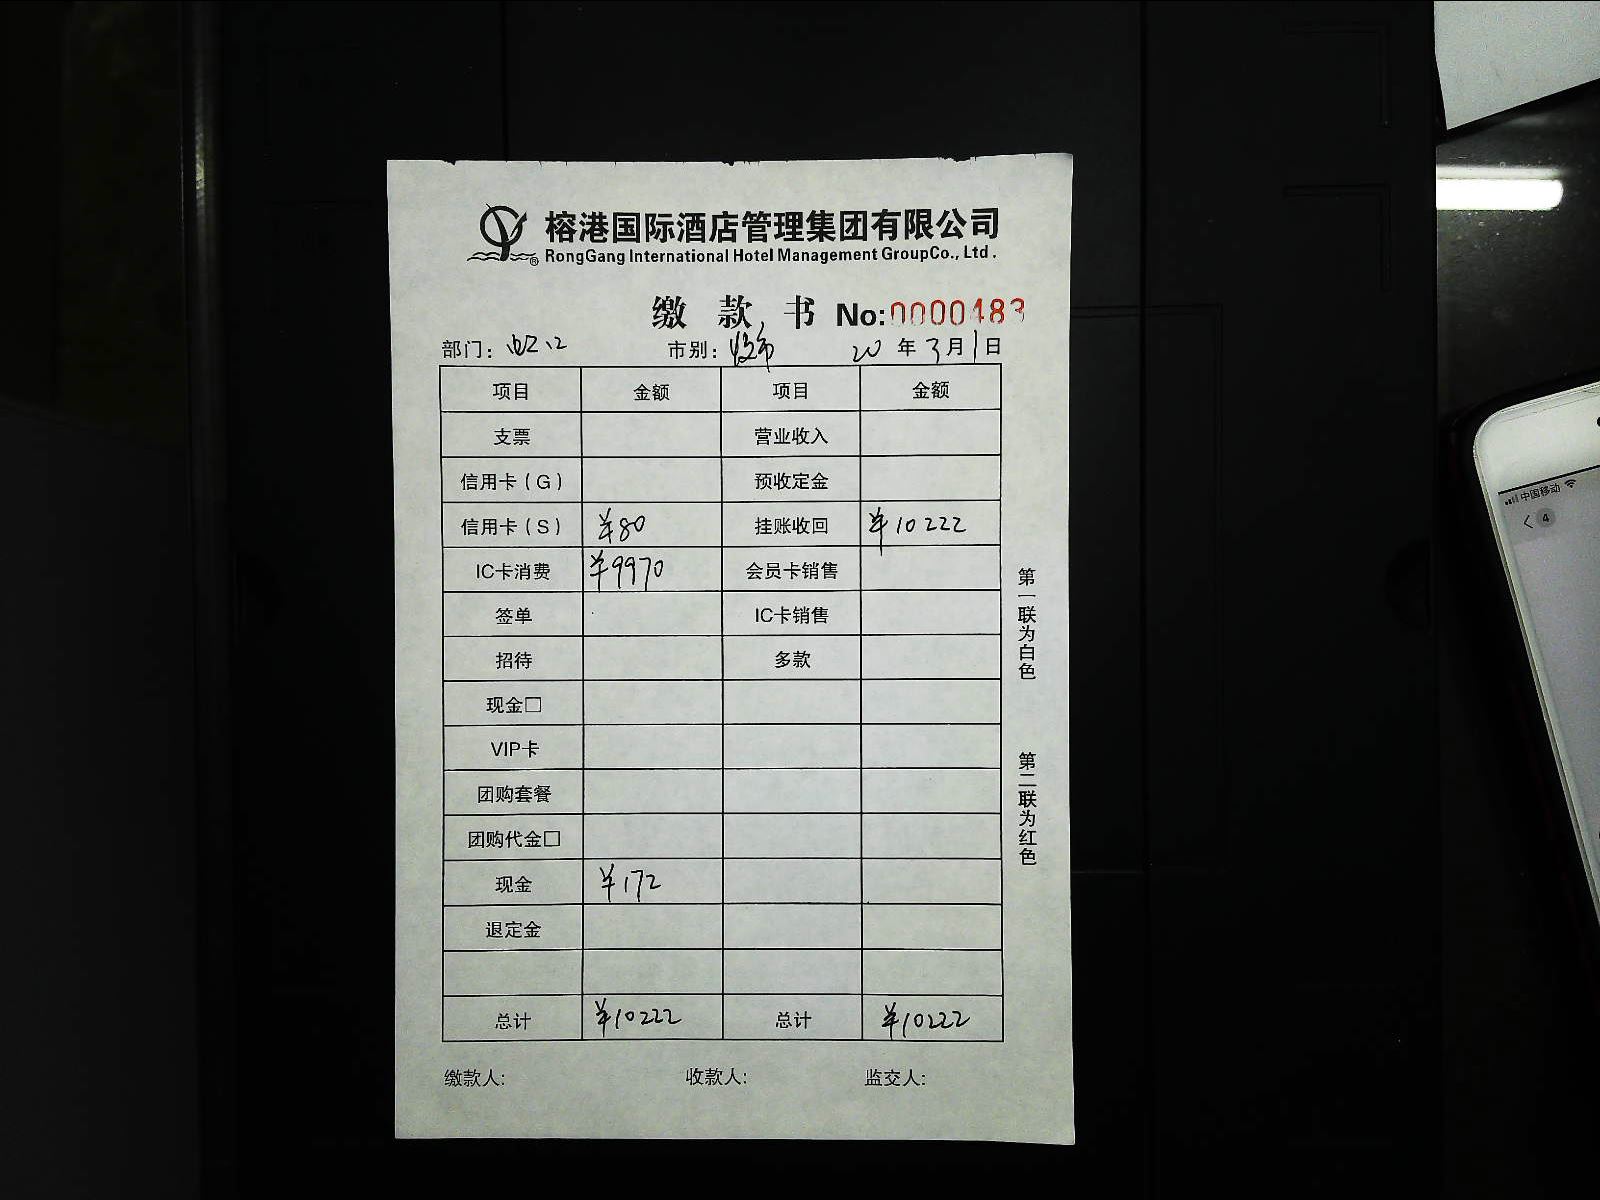 榕港国际酒店管理集团有限公司
RongGang International Hotel Management GroupCo., Ltd.
缴款书 No:0000483
部门： 市别： 20年3月1日
项目 金额 项目 金额
支票 营业收入
信用卡（G） 预收定金
信用卡（S） ¥80 挂账收回 ¥10222
IC卡消费 ¥9970 会员卡销售
签单 IC卡销售
招待 多款
现金□
VIP卡
团购套餐
团购代金□
现金 ¥172
退定金
总计 ¥10222 总计 ¥10222
缴款人: 收款人: 监交人:
第一联为白色
第二联为红色
中国移动
4